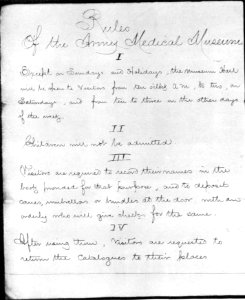 Rules
Of the Army Medical Museum
I
Except on Sundays and Holidays, the Museum Hall
will be open to Visitors from ten o'clk A.M. to two, on
Saturdays, and from ten to three on the other days
of the week
II
Children will not be admitted
III
Visitors are required to record their names in the
book provided for that purpose, and to deposit
canes, umbrellas or bundles at the door with an
orderly who will give checks for the same.
IV
After using them, Visitors are requested to
return the Catalogues to their places